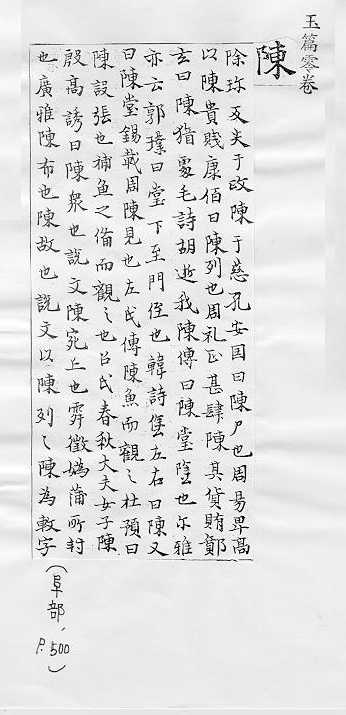 玉篇零卷
陳
除珎反失于政陳于慈孔安囯曰陳尸也周易畀髙
以陳貴賤康佰曰陳列也周礼正甚肆陳其貨賄鄭
玄曰陳猶䖏毛詩胡逝我陳傳曰陳堂塗也尒雅
亦云郭璞曰堂下至門侄也韓詩堂左右曰陳又
曰陳堂錫㦲周陳見也左氏傳陳魚而觀〻杜預曰
陳設張也捕魚之俻而觀〻也吕氏春秋大夫女子陳
殷髙誘曰陳衆也說文陳宛丘也霽徵嬀蒲所封
也廣雅陳布也陳故也說文以陳列〻陳為敶字
(阜部, P.500)